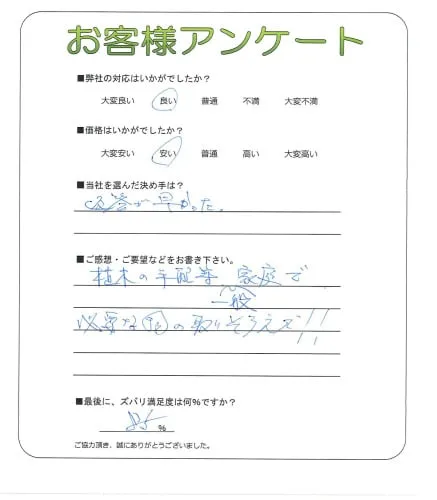 お客様アンケート
■弊社の対応はいかがでしたか?
大変良い 良い 普通 不満 大変不満
■価格はいかがでしたか?
大変安い 安い 普通 高い 大変高い
■当社を選んだ決め手は?
応答が早かった。
■ご感想・ご要望などをお書き下さい。
植木の手配等 家庭で
一般
必要な の取りそろえで!!
■最後に、ズバリ満足度は何%ですか?
85 %
ご協力頂き、誠にありがとうございました。